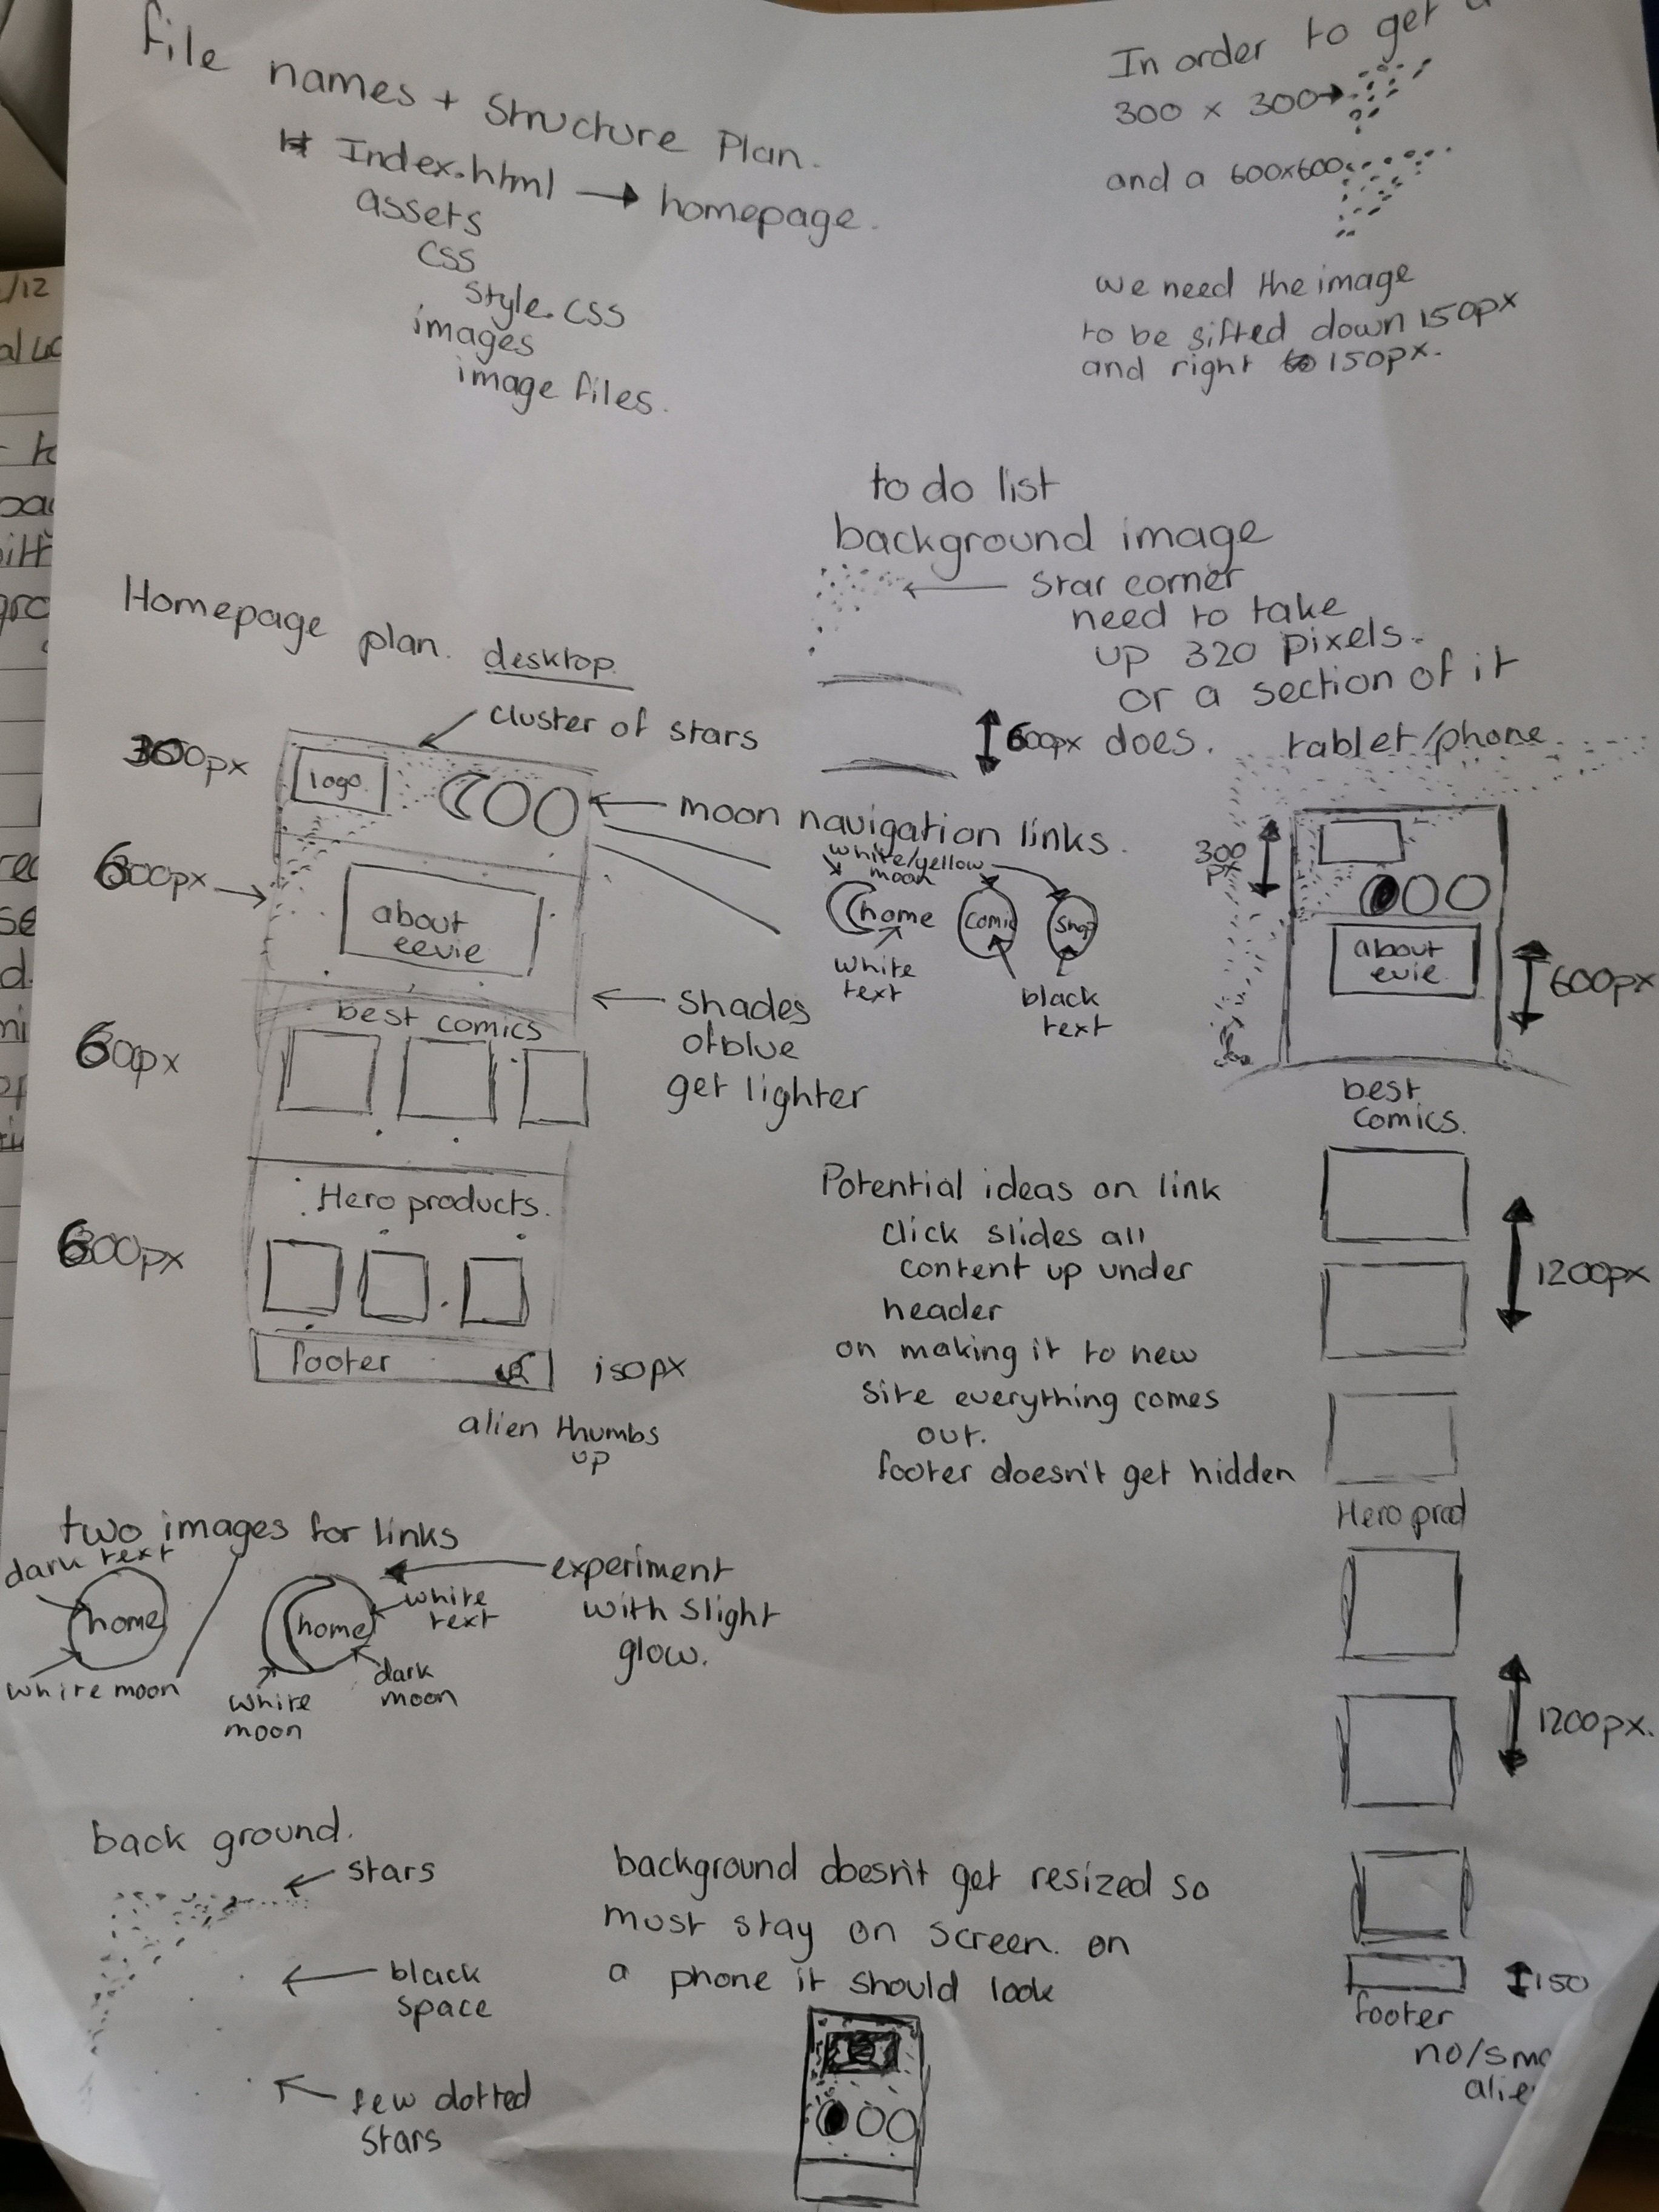 file names + Structure Plan.
Index.html → homepage.
assets
CSS
Style.CSS
images
image files.
In order to get
300 x 300→
and a 600x600
we need the image
to be sifted down 150px
and right 150px.
to do list
background image
Star corner
need to take
up 320 pixels.
or a section of it
600px does.
Homepage plan. desktop
cluster of stars
300px
logo
moon navigation links.
600px
about
eevie
white/yellow
moon
home
Comic
Shop
white
text
black
text
Shades
of blue
get lighter
600px
best comics
600px
Hero products.
footer
150px
alien thumbs
up
tablet/phone
300
px
about
evie
600px
best
Comics.
1200px
Hero prod
1200px.
150
footer
no/
Potential ideas on link
click slides all
content up under
header
on making it to new
site everything comes
out.
footer doesn't get hidden
two images for links
dark text
home
white moon
home
white
text
dark
moon
white
moon
experiment
with slight
glow.
back ground.
stars
black
space
few dotted
stars
background doesn't get resized so
must stay on screen. on
a phone it should look